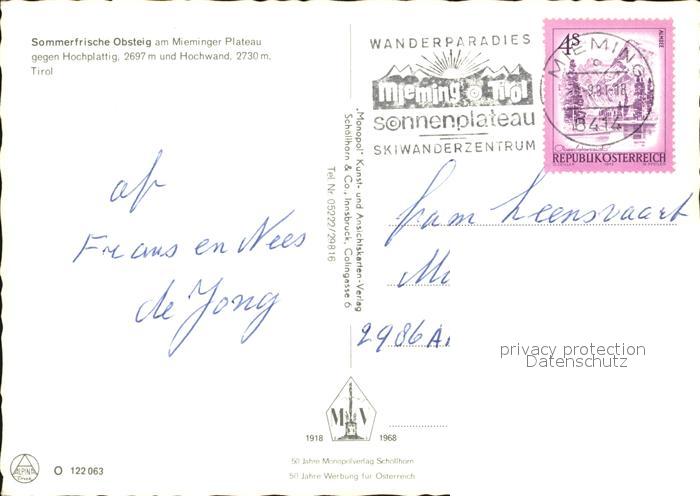 Sommerfrische Obsteig am Mieminger Plateau
gegen Hochplattig, 2697 m und Hochwand, 2730 m,
Tirol
WANDERPARADIES
mieming Tirol
sonnenplateau
SKIWANDERZENTRUM
4S
ALMSEE
MIEMING
6414
REPUBLIK ÖSTERREICH
"Monopol" Kunst- und Ansichtskarten-Verlag
Schöllhorn & Co., Innsbruck, Colingasse 6
Tel Nr 05222/29816
Frans en Nees
de Jong
fam Leensvaart
2986 A
privacy protection
Datenschutz
M V
1918 1968
50 Jahre Monopolverlag Schöllhorn
50 Jahre Werbung für Österreich
ALPINA
Druck
O 122 063